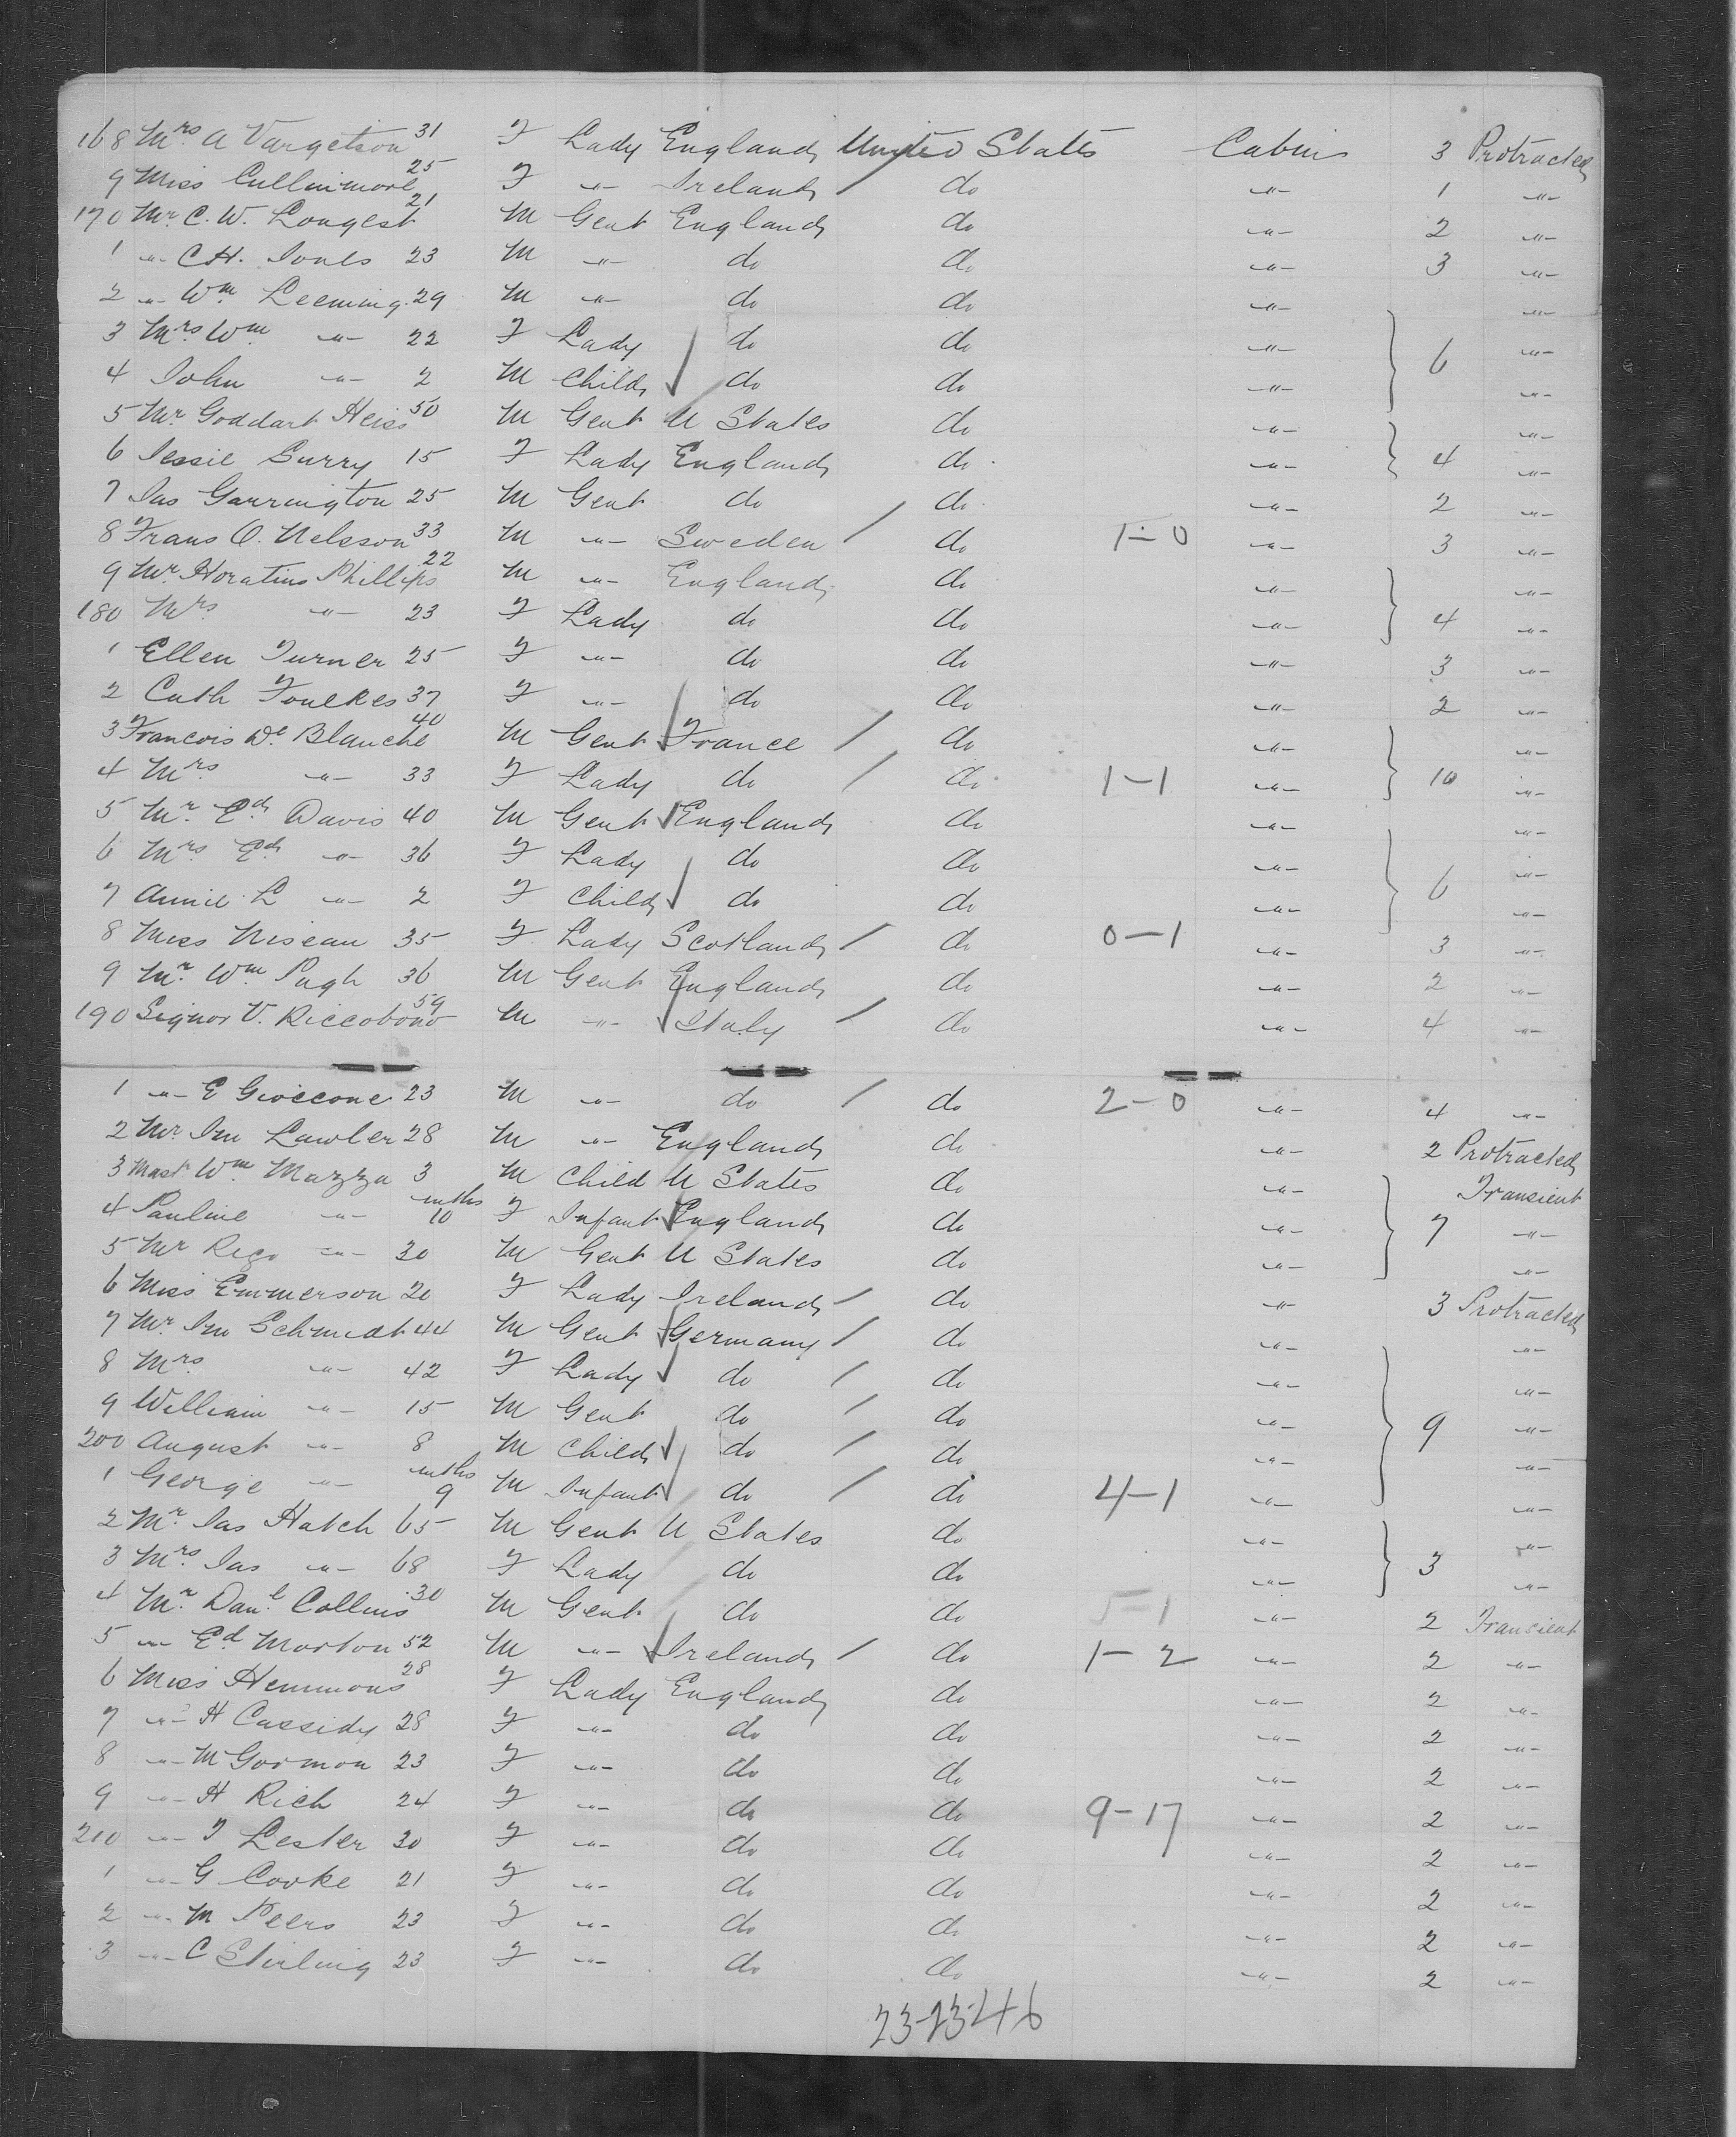 168 Mrs A Vargetson 31 F Lady England United States Cabin 3 Protracted
9 Miss Cullinmore 25 F -"- Ireland / do -"- 1 -"-
170 Mr. C. W. Longest 21 M Gent England do -"- 2 -"-
1 -"- C H. Jones 23 M -"- do do -"- 3 -"-
2 -"- Wm Leeming 29 M -"- do do -"- -"-
3 Mrs Wm -"- 22 F Lady do do -"- 6 -"-
4 John -"- 2 M Child do do -"- -"-
5 Mr. Goddart Heiss 50 M Gent U States do -"- -"-
6 Jessie Surry 15 F Lady England do -"- 4 -"-
7 Jas Garrington 25 M Gent do do -"- 2 -"-
8 Frans O. Nelsson 33 M -"- Sweden / do 1-0 -"- 3 -"-
9 Mr. Horatius Phillips 22 M -"- England do -"- -"-
180 Mrs -"- 23 F Lady do do -"- 4 -"-
1 Ellen Turner 25 F -"- do do -"- 3 -"-
2 Cath Foulkes 37 F -"- do do -"- 2 -"-
3 Francois De Blanche 40 M Gent France / do -"- -"-
4 Mrs -"- 33 F Lady do / do 1-1 -"- 10 -"-
5 Mr. Ed Davis 40 M Gent England do -"- -"-
6 Mrs Ed -"- 36 F Lady do do -"- -"-
7 Annie L -"- 2 F Child do do -"- 6 -"-
8 Miss Niseau 35 F Lady Scotland / do 0-1 -"- 3 -"-
9 Mr. Wm Pugh 36 M Gent England do -"- 2 -"-
190 Signor V. Riccobono 59 M -"- Italy / do -"- 4 -"-
1 -"- E Gioccone 23 M -"- do / do 2-0 -"- 4 -"-
2 Mr. Jno Lawler 28 M -"- England do -"- 2 Protracted
3 Mast Wm Mazza 3 M Child U States do -"- Transient
4 Pauline -"- mths 10 F Infant England do -"- 7 -"-
5 Mr Rego -"- 30 M Gent U States do -"- -"-
6 Miss Emmerson 20 F Lady Ireland / do -"- 3 Protracted
7 Mr. Jno Schmidt 44 M Gent Germany / do -"- -"-
8 Mrs -"- 42 F Lady do / do -"- -"-
9 William -"- 15 M Gent do / do -"- 9 -"-
200 August -"- 8 M Child do / do -"- -"-
1 George -"- mths 9 M Infant do / do 4-1 -"- -"-
2 Mr. Jas Hatch 65 M Gent U States do -"- -"-
3 Mrs. Jas -"- 68 F Lady do do -"- 3 -"-
4 Mr. Danl Collins 30 M Gent do do 5-1 -"- 2 Transient
5 -"- Ed Morton 52 M -"- Ireland / do 1-2 -"- 2 -"-
6 Miss Hemmons 28 F Lady England do -"- 2 -"-
7 -"- H Cassidy 28 F -"- do do -"- 2 -"-
8 -"- M Gormon 23 F -"- do do -"- 2 -"-
9 -"- H Rich 24 F -"- do do 9-17 -"- 2 -"-
210 -"- T Lester 30 F -"- do do -"- 2 -"-
1 -"- G Cooke 21 F -"- do do -"- 2 -"-
2 -"- M Peers 23 F -"- do do -"- 2 -"-
3 -"- C Stirling 23 F -"- do do -"- 2 -"-
23-23-46